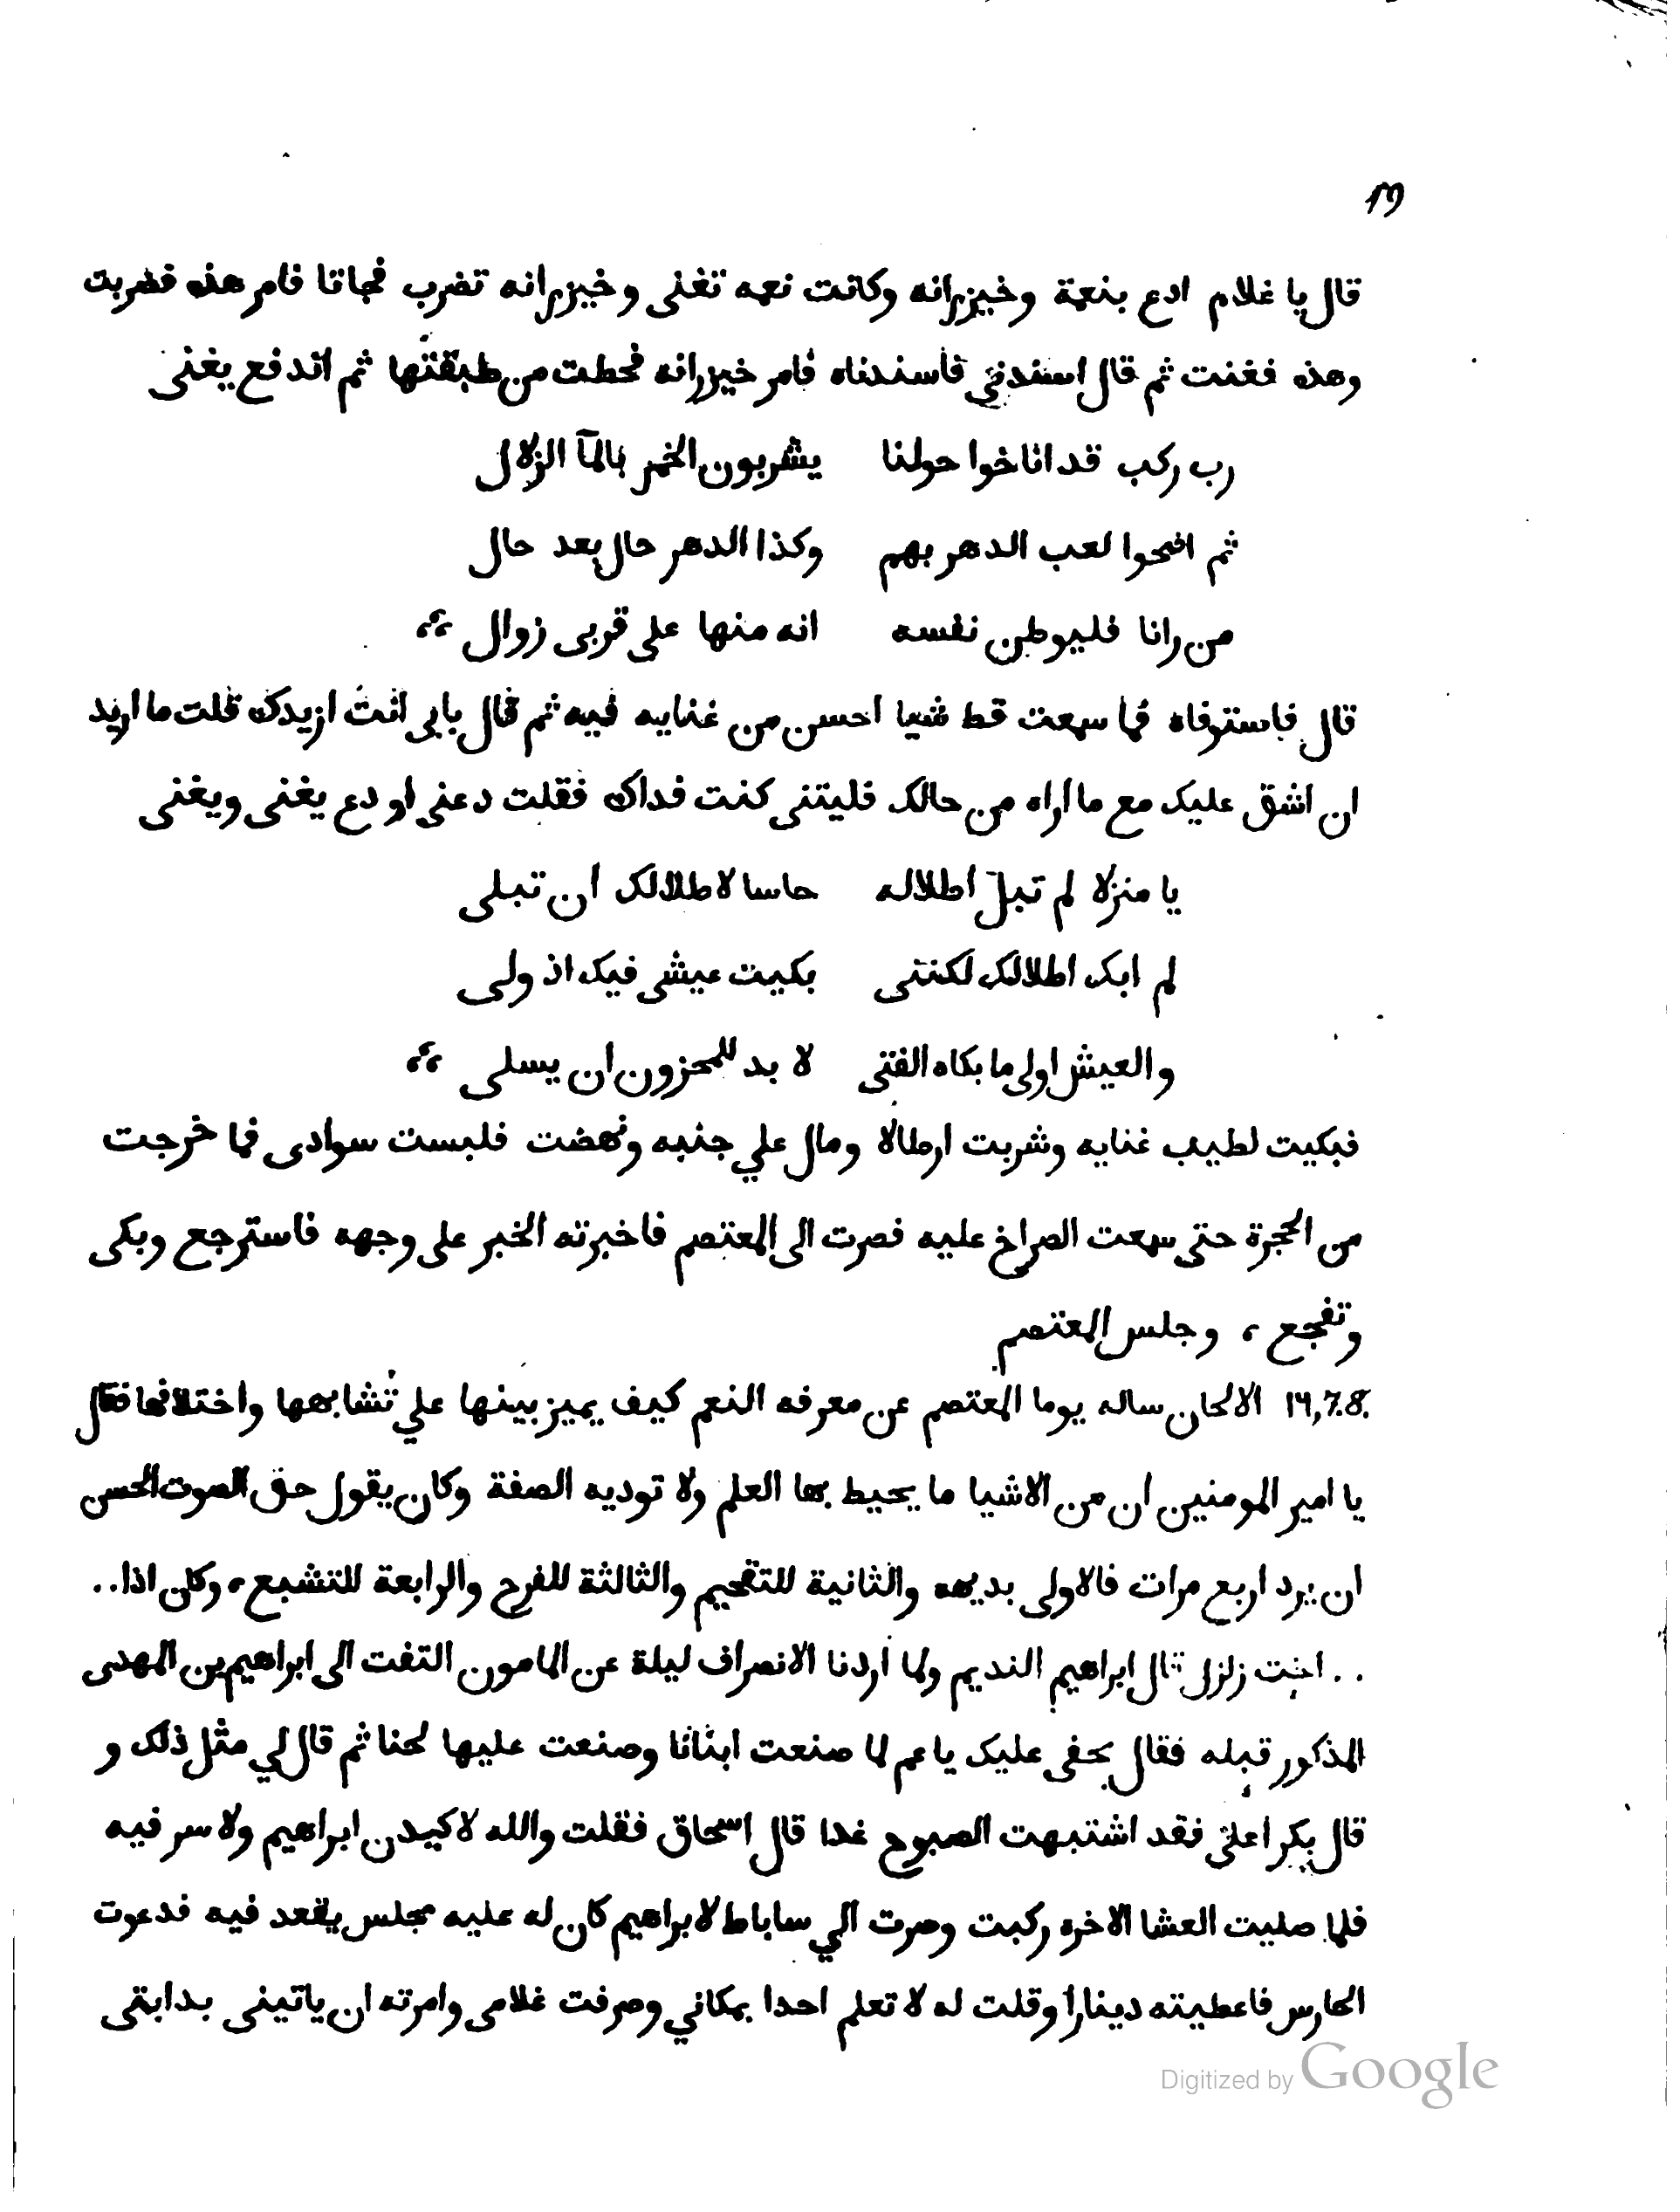 ١٩
قال يا غلام ادع بنعمة وخيزرانه وكانت نعمه تغنى وخيزرانه تضرب فجاتا فامر هذه فضربت
وهذه فغنت ثم قال اسندني فاسندناه فامر خيزرانه فحطت من طبقتها ثم اندفع يغنى
رب ركب قد اناخوا حولنا يشربون الخمر بالمآ الزلال
ثم اضحوا لعب الدهر بهم وكذا الدهر حال بعد حال
من رانا فليوطن نفسه انه منها على قربى زوال
قال فاستوفاه فما سمعت قط شيا احسن من غنايه فيه ثم قال بابى انت ازيدك قلت ما اريد
ان اشق عليك مع ما اراه من حالك فليتنى كنت فداك فقلت دعنى او دع يغنى ويغنى
يا منزلا لم تبل اطلاله حاسا لاطلالك ان تبلى
لم ابك اطلالك لكننى بكيت عيشى فيك اذ ولى
والعيش اولى ما بكاه الفتى لا بد للمحزون ان يسلى
فبكيت لطيب غنايه وشربت ارطالا ومال علي جنبه ونهضت فلبست سوادى فما خرجت
من الحجرة حتى سمعت الصراخ عليه فصرت الى المعتصم فاخبرته الخبر على وجهه فاسترجع وبكى
وتفجع، وجلس المعتصم
14,7.8. الالحان ساله يوما المعتصم عن معرفه النعم كيف يميز بينها علي تشابهها واختلافها فقال
يا امير المومنين ان من الاشيا ما يحيط بها العلم ولا توديه الصفة وكان يقول حق الصوت الحسن
ان يرد اربع مرات فالاولى بديهه والثانية للتقحيم والثالثة للفرح والرابعة للتشبع، وكان اذا..
.. اخت زلزل قال ابراهيم النديم ولما اردنا الانصراف ليلة عن المامون التفت الى ابراهيم بن المهدى
المذكور قبله فقال بحقى عليك يا عم لما صنعت ابتانا وصنعت عليها لحنا ثم قال لي مثل ذلك و
قال بكر اعلى فقد اشتبهت الصبوح غدا قال اسحاق فقلت والله لاكيدن ابراهيم ولا سر فيه
فلما صليت العشا الاخره ركبت وصرت الي ساباط لابراهيم كان له عليه مجلس يقعد فيه فدعوت
الحارس فاعطيته دينارا وقلت له لا تعلم احدا بمكاني وصرفت غلامى وامرته ان ياتينى بدابتى
Digitized by Google